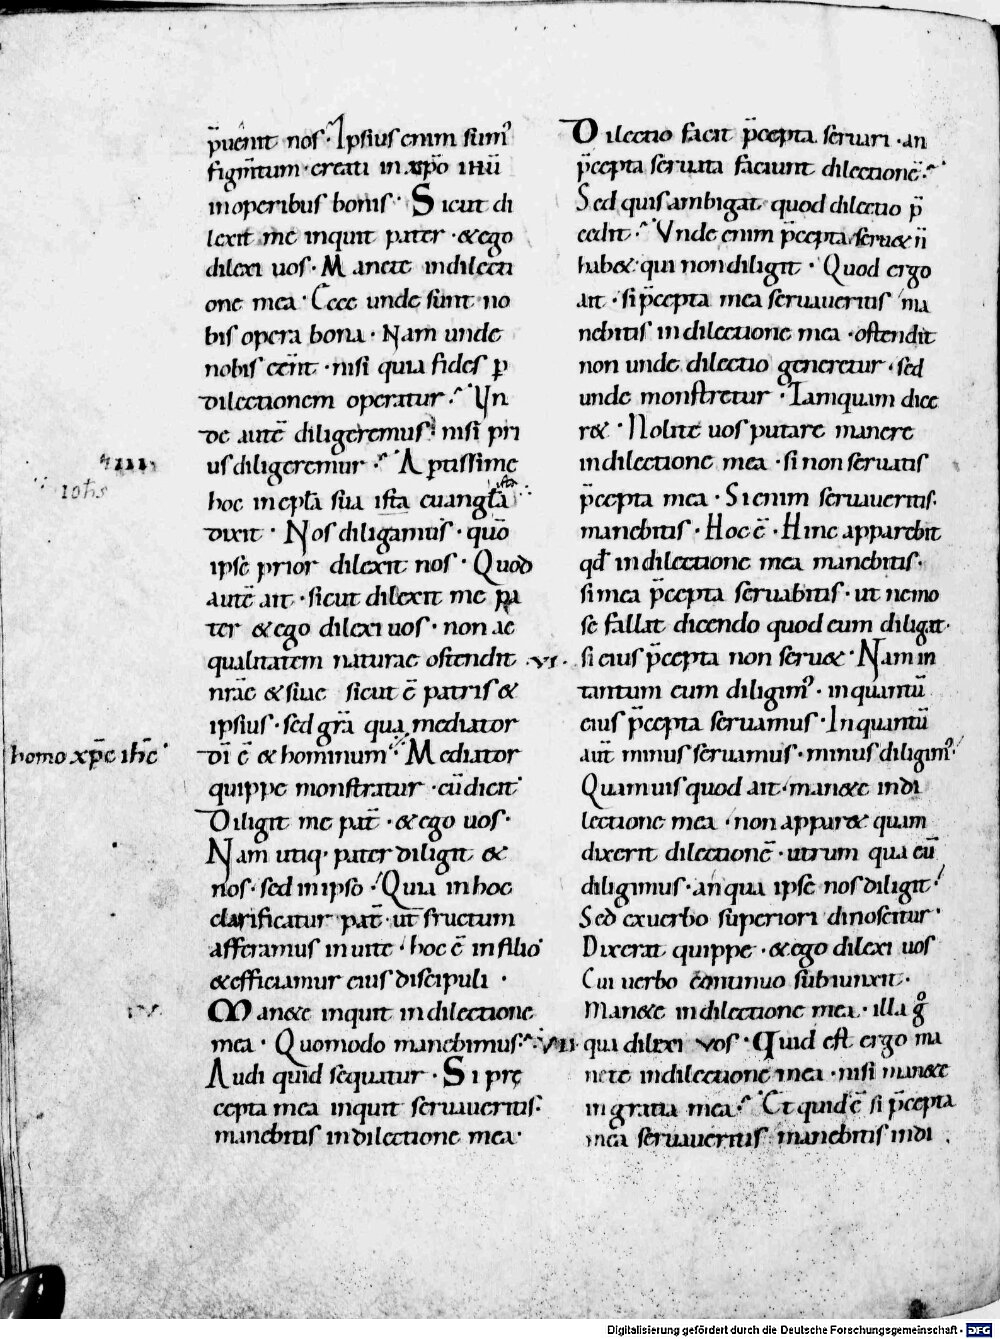 p̄uenit nos · Ipsius enim sum᷒
figm̄tum · creati in xp̄o ihū
in operibus bonis · Sicut di
lexit me inquit pater · & ego
dilexi uos · Manete in dilecti
one mea · Ecce unde sunt no
bis opera bona · Nam unde
nobis eēnt · nisi quia fides ꝑ
dilectionem operatur · Un
de autē diligeremus · nisi pri
us diligeremur · Aptissime
.IIII.
ioħs
hoc in epl̄a sua ista euangl̄ista
dixit · Nos diligamus · quō
ipse prior dilexit nos · Quod
autē ait · sicut dilexit me pa
ter & ego dilexi uos · non ae
qualitatem naturae ostendit
nr̄ae & siue sicut ē patris &
ipsius · sed grā qua mediator
homo xp̄c ihc̄
dī ē & hominum · Mediator
quippe monstratur · cū dicit
Diligit me pat̄ · & ego uos ·
Nam utiq· pater diligit &
nos · sed in ipso · Quia in hoc
clarificatur pat̄ · ut fructum
afferamus in uite · hoc ē in filio
& efficiamur eius discipuli ·
.V.
Man&e inquit in dilectione
mea · Quomodo manebimus ·
Audi quid sequatur · Si prę
cepta mea inquit seruaueritis ·
manebitis in dilectione mea ·
Dilectio facit p̄cepta seruari · an
p̄cepta seruata faciunt dilectionē ·
Sed quis ambigat quod dilectio p̄
cedit · Unde enim p̄cepta seru& n̄
hab& · qui non diligit · Quod ergo
ait · si p̄cepta mea seruaueritis ma
nebitis in dilectione mea · ostendit
non unde dilectio generetur · sed
unde monstretur · Tamquam dice
r& · Nolite uos putare manere
in dilectione mea · si non seruatis
p̄cepta mea · Si enim seruaueritis ·
manebitis · Hoc ē · Hinc apparebit
qđ in dilectione mea manebitis ·
si mea p̄cepta seruabitis · ut nemo
se fallat dicendo quod eum diligat ·
.VI. si eius p̄cepta non seru& · Nam in
tantum eum diligim᷒ · in quantū
eius p̄cepta seruamus · In quantū
aūt minus seruamus · minus diligim᷒ ·
Quamuis quod ait · man&e in di
lectione mea · non appar& quam
dixerit dilectionē · utrum qua eū
diligimus · an qua ipse nos diligit ·
Sed ex uerbo superiori dinoscitur ·
Dixerat quippe · & ego dilexi uos
Cui uerbo continuo subiunxit ·
Man&e in dilectione mea · illa g̊
.VII. qua dilexi vos · Quid est ergo ma
nete in dilectione mea · nisi man&e
in gratia mea · Et quid ē si p̄cepta
mea seruaueritis manebitis in di
Digitalisierung gefördert durch die Deutsche Forschungsgemeinschaft - DFG